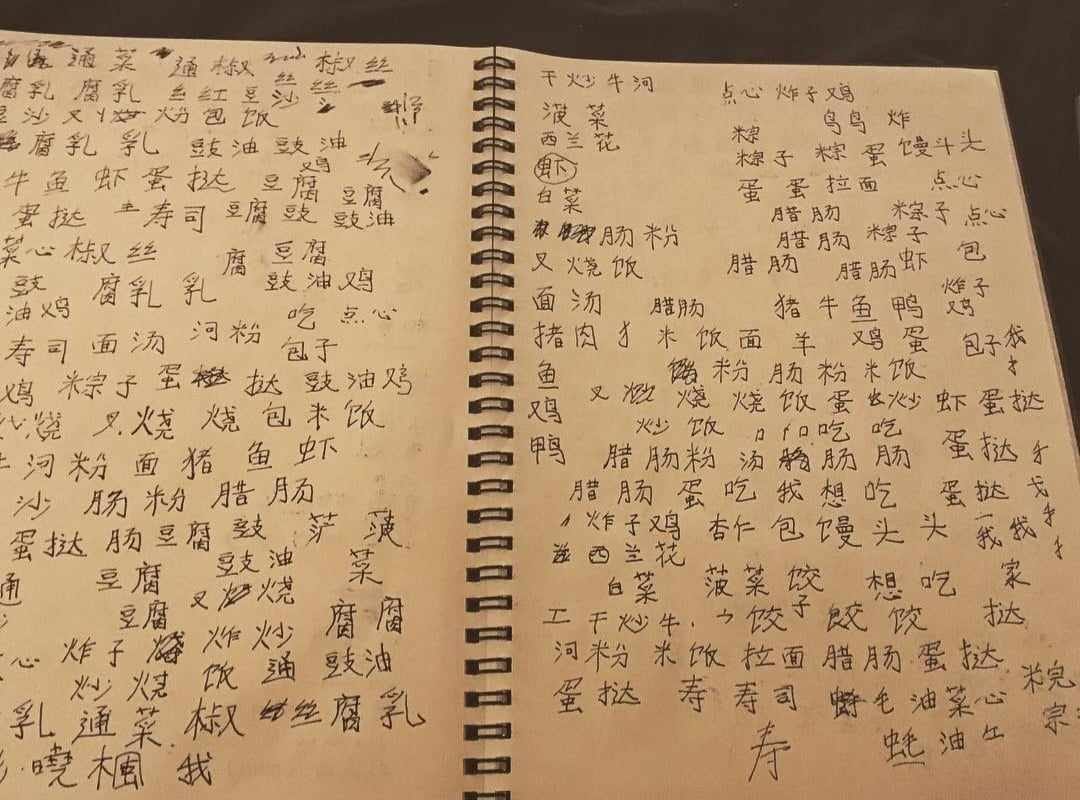 通菜 通椒 椒丝
腐乳 腐乳 丝红豆沙 丝丝
沙叉 粉包饭
腐乳 乳 豉油豉油
牛鱼虾蛋挞 豆腐 鸡 豆腐
蛋挞 寿司 豆腐豉 豉油
菜心椒丝 腐 豆腐
豉 腐乳 乳 豉油鸡
油鸡 吃 点心
寿司 面汤 河粉 包子
鸡 粽子 蛋 挞 豉油鸡
烧 叉烧 烧包米饭
河粉面猪鱼虾
沙 肠粉 腊肠
蛋挞肠豆腐 豉 菠
通 豆腐 豉油 菜
豆腐 叉 烧 腐腐
心 炸子 炸炒 豉油
炒烧 饭 通
乳 通菜 椒 丝腐乳
晓枫 我
干炒牛河
菠菜
西兰花
虾
白菜
肠粉
叉烧饭
面汤 腊肠
猪肉 米饭面
鱼 粉 肠粉米饭
鸡 叉 烧 烧饭蛋 炒 虾蛋挞
炒饭 吃 吃
鸭 腊肠粉 汤 肠肠 蛋挞
腊肠 蛋吃我想吃 蛋挞
炸子鸡 杏仁 包馒头 头 我我
西兰花
白菜 菠菜饺 想吃 家
工 干炒牛 饺子 餃 饺 挞
河粉 米饭 拉面 腊肠 蛋挞
蛋挞 寿 寿司 毛 油菜心
寿 蚝油
点心 炸子鸡
鸟鸟 炸
粽
粽子 粽 蛋馒斗头
蛋 蛋拉面 点心
腊肠 粽子 点心
腊肠 粽子
腊肠 腊肠虾 包
猪牛鱼鸭 炸子鸡
羊 鸡蛋 包子 我
宗